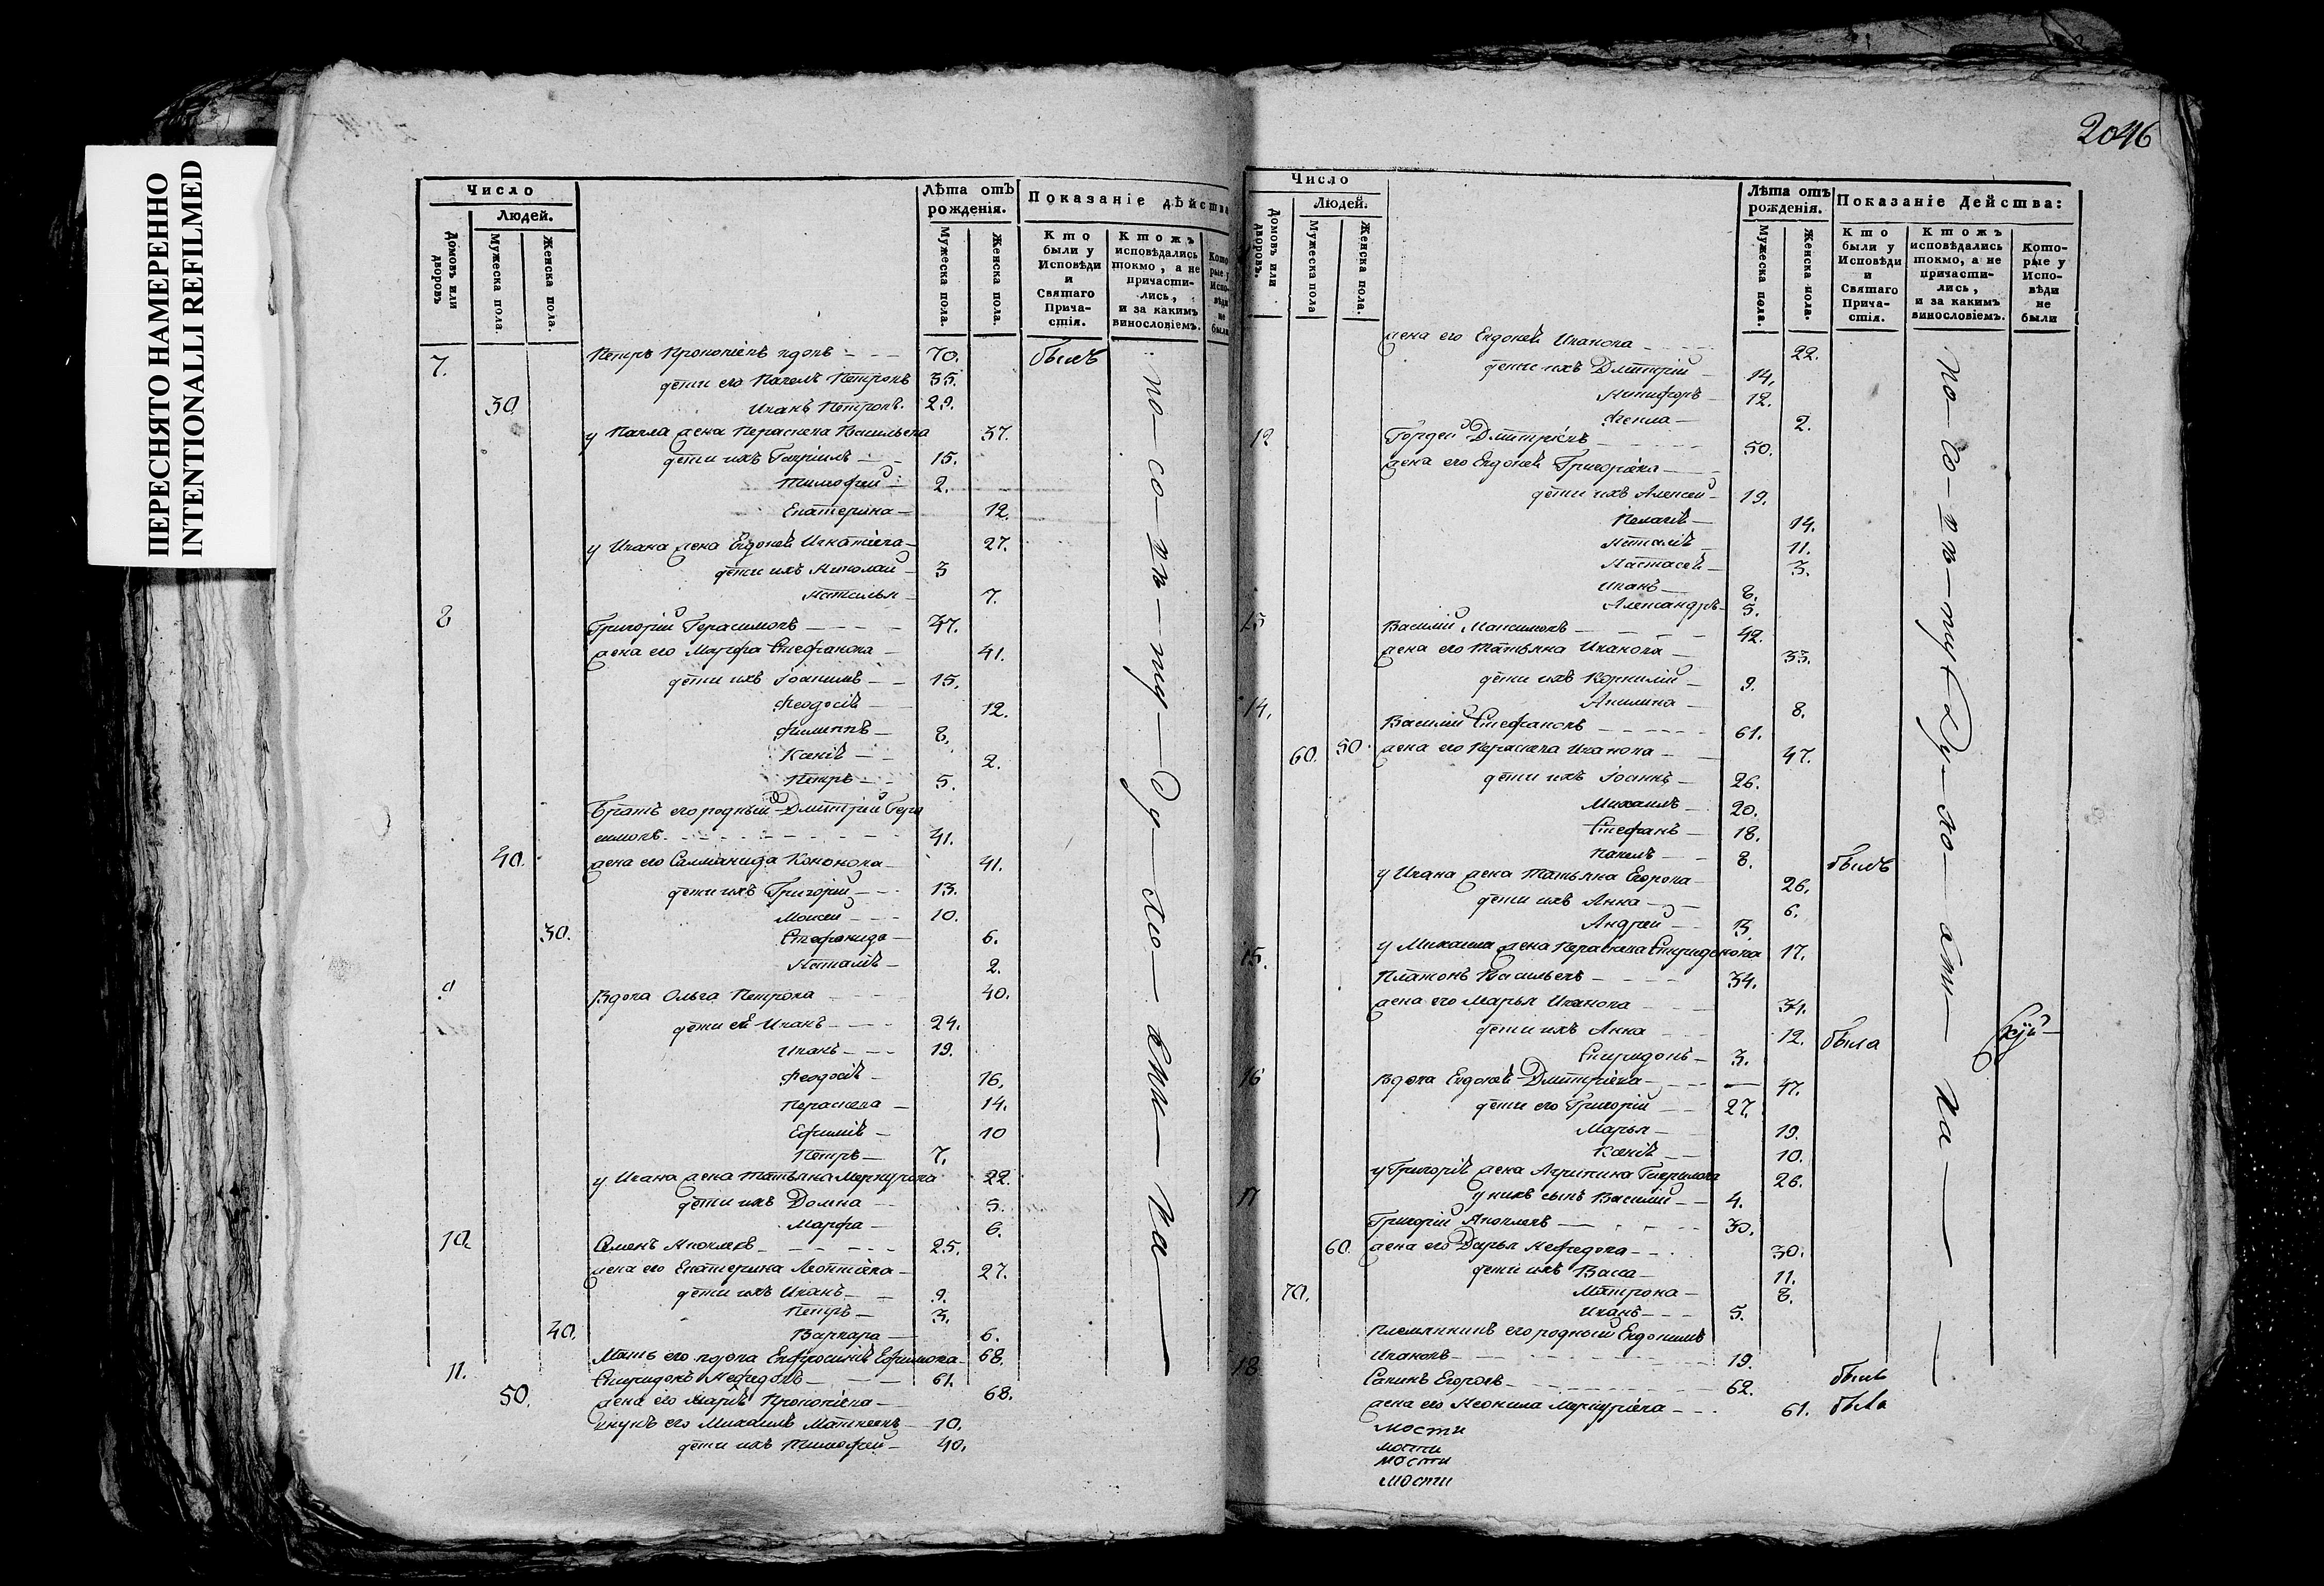 ПЕРЕСНЯТО НАМЕРЕННО
INTENTIONALLI REFILMED
Число
Людей.
Домовъ или дворовъ
Мужеска пола.
Женска пола.
Лѣта отъ рожденія.
Мужеска пола.
Женска пола.
Показаніе дѣйства
Кто были у Исповѣди и Святаго Причастія.
Ктожъ исповѣдались токмо, а не причастились, и за какимъ винословіемъ.
Которые у Исповѣди не были
7. Петръ Прокопіевъ вдовъ 70. былъ
дѣти его Павелъ Петровъ 35.
30. Иванъ Петровъ. 29.
у Павла жена Параскева Васильева 37.
дѣти ихъ Гавріилъ 15.
Тимофей 2.
Екатерина 12.
у Ивана жена Евдокія Игнатіева 27.
дѣти ихъ Николай 3
Наталья 7.
8 Григорій Герасимовъ 47.
жена его Марфа Стефанова 41.
дѣти ихъ Іоакимъ 15.
Феодосія 12.
Филиппъ 8.
Ксенія 2.
Петръ 5.
Братъ его родный Дмитрій Гера
симовъ. 41.
40. жена его Саломанида Кононова 41.
дѣти ихъ Григорій 13.
Моисей 10.
30. Стефанида 6.
Наталія 2.
9 Вдова Ольга Петрова 40.
дѣти ея Иванъ 24.
Иванъ 19.
Феодосія 16.
Параскева 14.
Ефимія 10
Петръ 7.
у Ивана жена Татьяна Меркурьева 22.
дѣти ихъ Домна 5.
Марфа 6.
10. Семенъ Яковлевъ 25.
жена его Екатерина Леонтіева 27.
дѣти ихъ Иванъ 9.
Петръ 3.
40. Варвара 6.
Мать его вдова Евфросинія Ефимова 68.
11. Спиридонъ Нефедовъ 61.
50. жена его Марія Прокопіева 68.
внукъ его Михаилъ Матвеевъ 10.
дѣти ихъ Тимофей 40.
по со вѣ ту Ду хо вни ка
2046
Число
Людей.
Домовъ или дворовъ.
Мужеска пола
Женска пола.
Лѣта отъ рожденія.
Мужеска пола.
Женска пола.
Показаніе Действа:
Кто были у Исповѣди и Святаго Причастія.
Ктожъ исповѣдались токмо, а не причастились, и за какимъ винословіемъ.
Которые у Исповѣди не были
жена его Евдокія Иванова 22.
дѣти ихъ Дмитрій 14.
Никифоръ 12.
Фекла 2.
12 Гордей Дмитріевъ 50.
жена его Евдокія Григоріева
дѣти ихъ Алексей 19.
Пелагія 14.
Наталія 11.
Настасія 3.
Иванъ 8.
Александръ 5.
13 Василій Максимовъ 42.
жена его Татьяна Иванова 33.
дѣти ихъ Корнилій 9.
Акилина 8.
14. Василій Стефановъ 61.
60. 50. жена его Параскева Иванова 47.
дѣти ихъ Іоаннъ 26.
Михаилъ 20.
Стефанъ 18.
Павелъ 8. былъ
у Ивана жена Татьяна Егорова 26.
дѣти ихъ Анна 6.
Андрей 3.
у Михаила жена Параскева Спиридонова 17.
15. Платонъ Васильевъ 34.
жена его Марья Иванова 34.
дѣти ихъ Анна 12. была
Спиридонъ 3.
16 вдова Евдокія Дмитріева 47.
дѣти его Григорій 27.
Марья 19.
Ксенія 10.
у Григорія жена Агрипина Гаврилова 26.
у нихъ сынъ Василій 4.
17 Григорій Яковлевъ 30.
60. жена его Дарья Нефедова 30.
дѣти ихъ Васса 11.
70. Матрона 8.
Иванъ 5.
Племянникъ его родный Евдокимъ
Ивановъ 19.
18 Савинъ Егоровъ 62. былъ
жена его Неонила Меркуріева 61. была
мости
мости
мости
мости
по со вѣ ту Ду хо вни ка